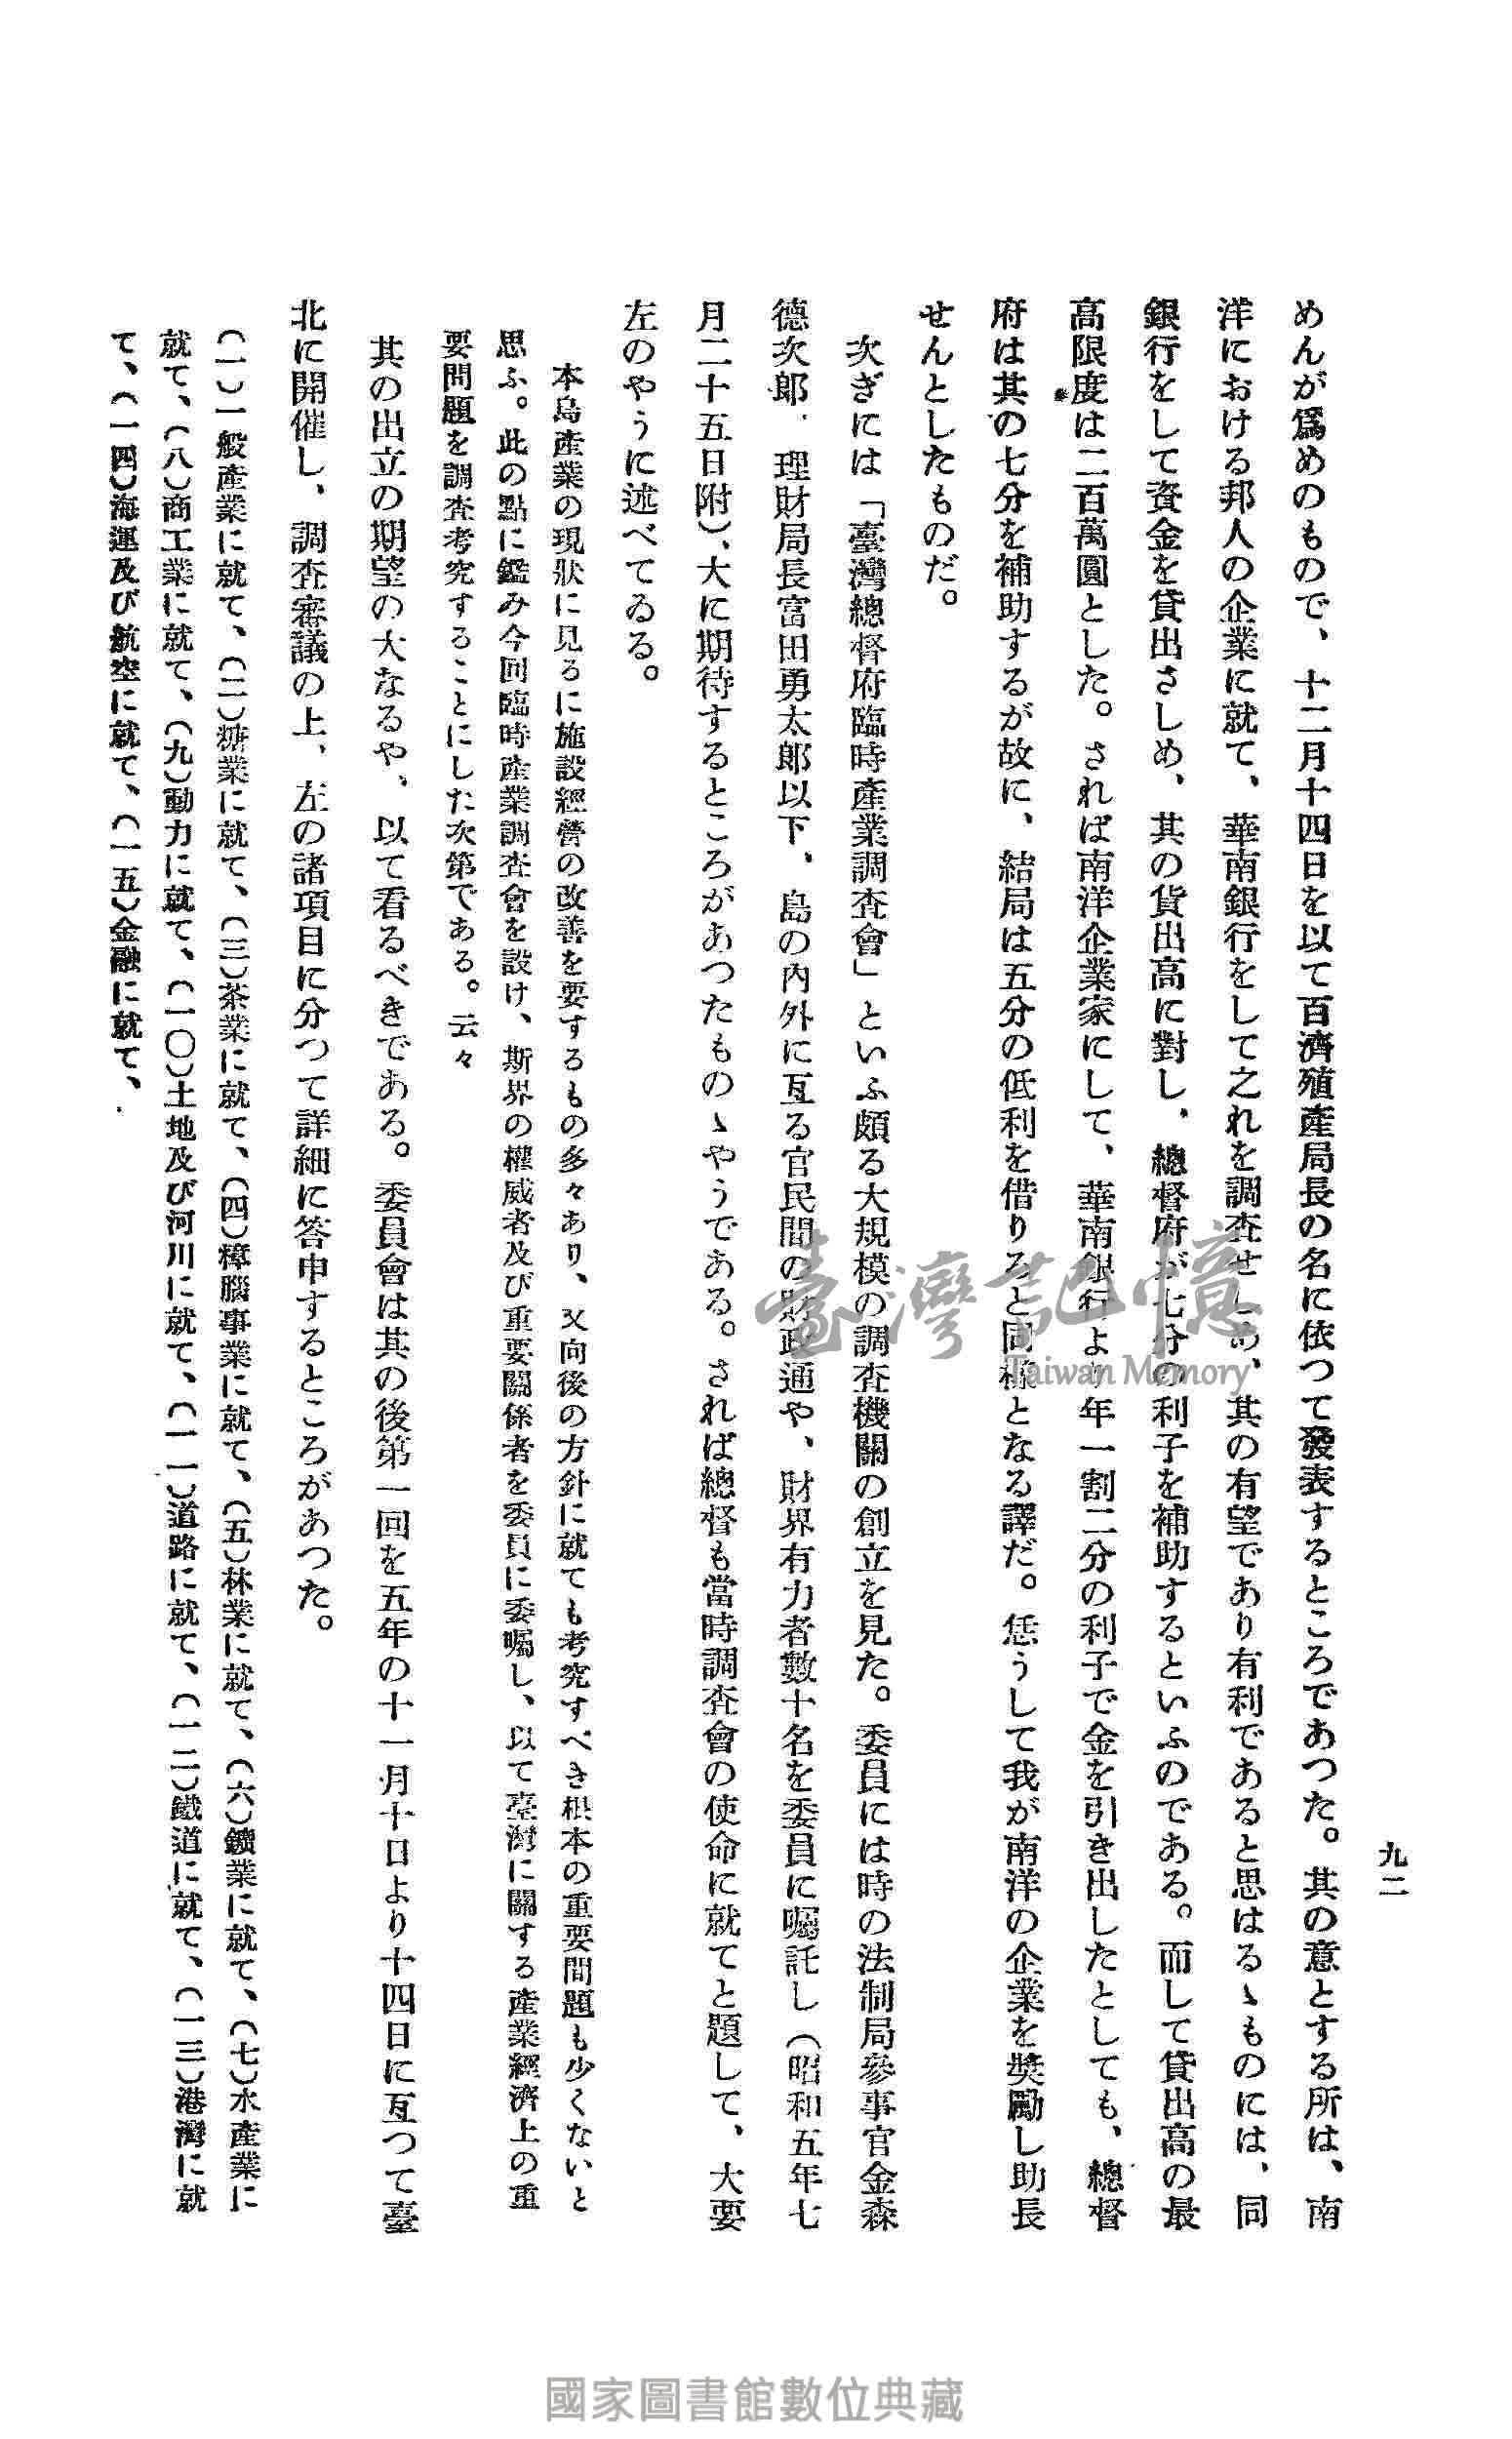 九二
めんが爲めのもので、十二月十四日を以て百濟殖產局長の名に依つて發表するところであつた。其の意とする所は、南
洋における邦人の企業に就て、華南銀行をして之れを調査せしめ、其の有望であり有利であると思はるゝものには、同
銀行をして資金を貸出さしめ、其の貨出高に對し、總督府が七分の利子を補助するといふのである。而して貸出高の最
高限度は二百萬圓とした。されば南洋企業家にして、華南銀行より年一割二分の利子で金を引き出したとしても、總督
府は其の七分を補助するが故に、結局は五分の低利を借りると同樣となる譯だ。恁うして我が南洋の企業を奬勵し助長
せんとしたものだ。
次ぎには「臺灣總督府臨時產業調査會」といふ頗る大規模の調査機關の創立を見た。委員には時の法制局參事官金森
德次郎、理財局長富田勇太郎以下、島の內外に亙る官民間の財政通や、財界有力者數十名を委員に囑託し（昭和五年七
月二十五日附）、大に期待するところがあつたものゝやうである。されば總督も當時調査會の使命に就てと題して、大要
左のやうに述べてゐる。
本島產業の現狀に見るに施設經營の改善を要するもの多々あり、又向後の方針に就ても考究すべき根本の重要問題も少くないと
思ふ。此の點に鑑み今回臨時產業調査會を設け、斯界の權威者及び重要關係者を委員に委囑し、以て臺灣に關する產業經濟上の重
要問題を調査考究することにした次第である。云々
其の出立の期望の大なるや、以て看るべきである。委員會は其の後第一回を五年の十一月十日より十四日に亙つて臺
北に開催し、調査審議の上、左の諸項目に分つて詳細に答申するところがあつた。
（一）一般產業に就て、（二）糖業に就て、（三）茶業に就て、（四）樟腦事業に就て、（五）林業に就て、（六）鑛業に就て、（七）水產業に
就て、（八）商工業に就て、（九）動力に就て、（一〇）土地及び河川に就て、（一一）道路に就て、（一二）鐵道に就て、（一三）港灣に就
て、（一四）海運及び航空に就て、（一五）金融に就て、
臺灣記憶
Taiwan Memory
國家圖書館數位典藏